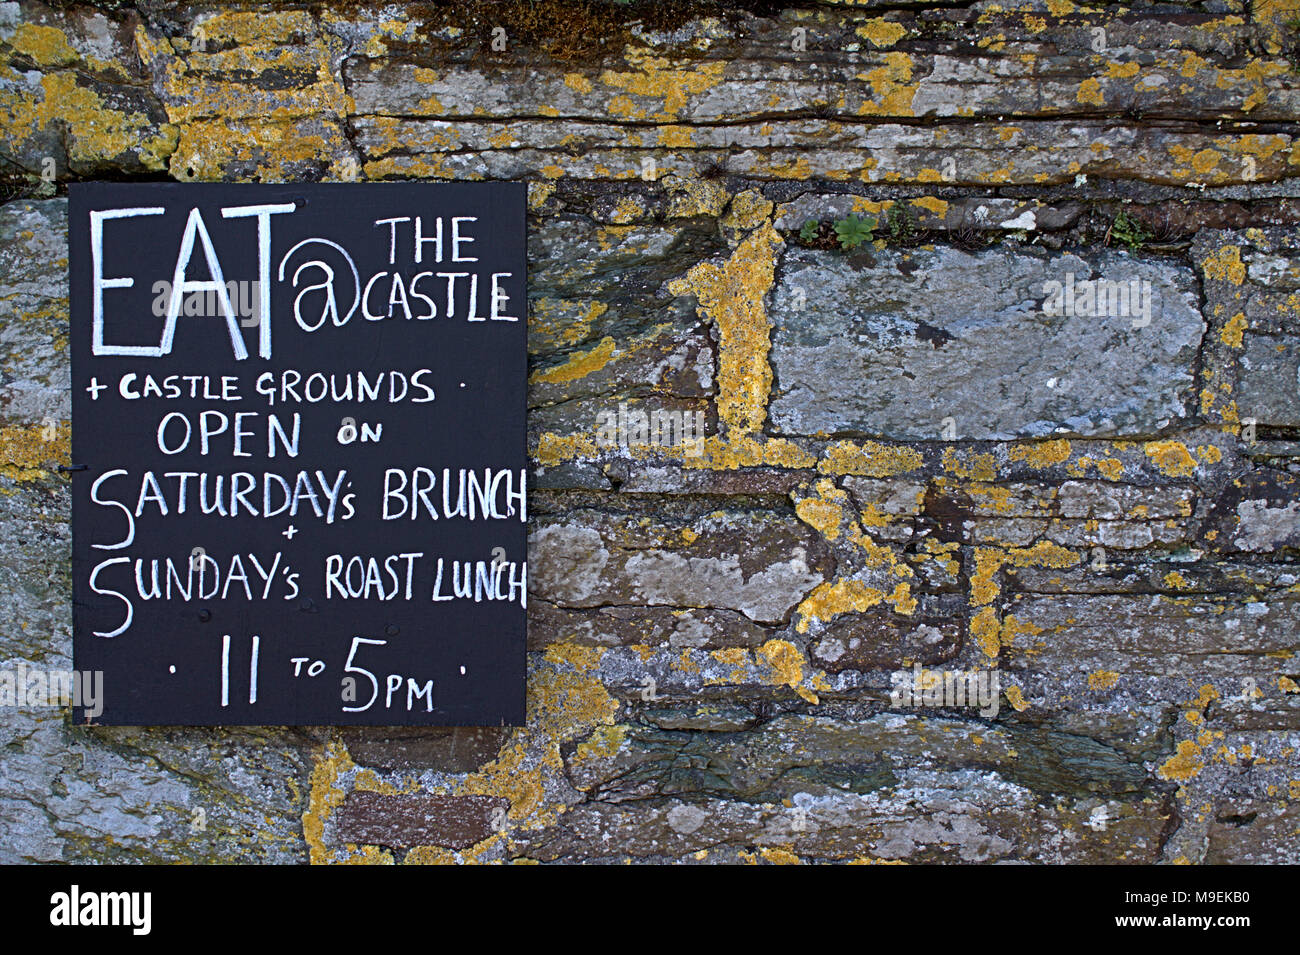 EAT @ THE CASTLE
+ CASTLE GROUNDS .
OPEN ON
SATURDAY's BRUNCH
+
SUNDAY's ROAST LUNCH
. 11 TO 5PM .
alamy
Image ID: M9EKB0
www.alamy.com